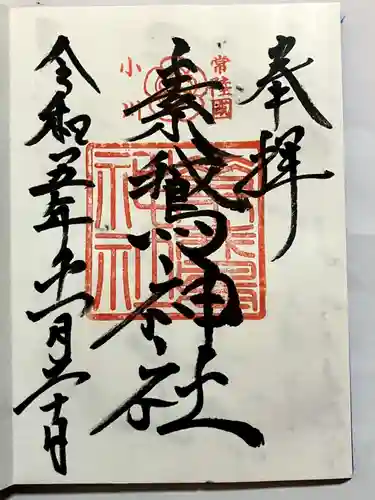 奉拝
常陸國
小川
素鵞神社
素鵞
神社
令和五年十一月十日